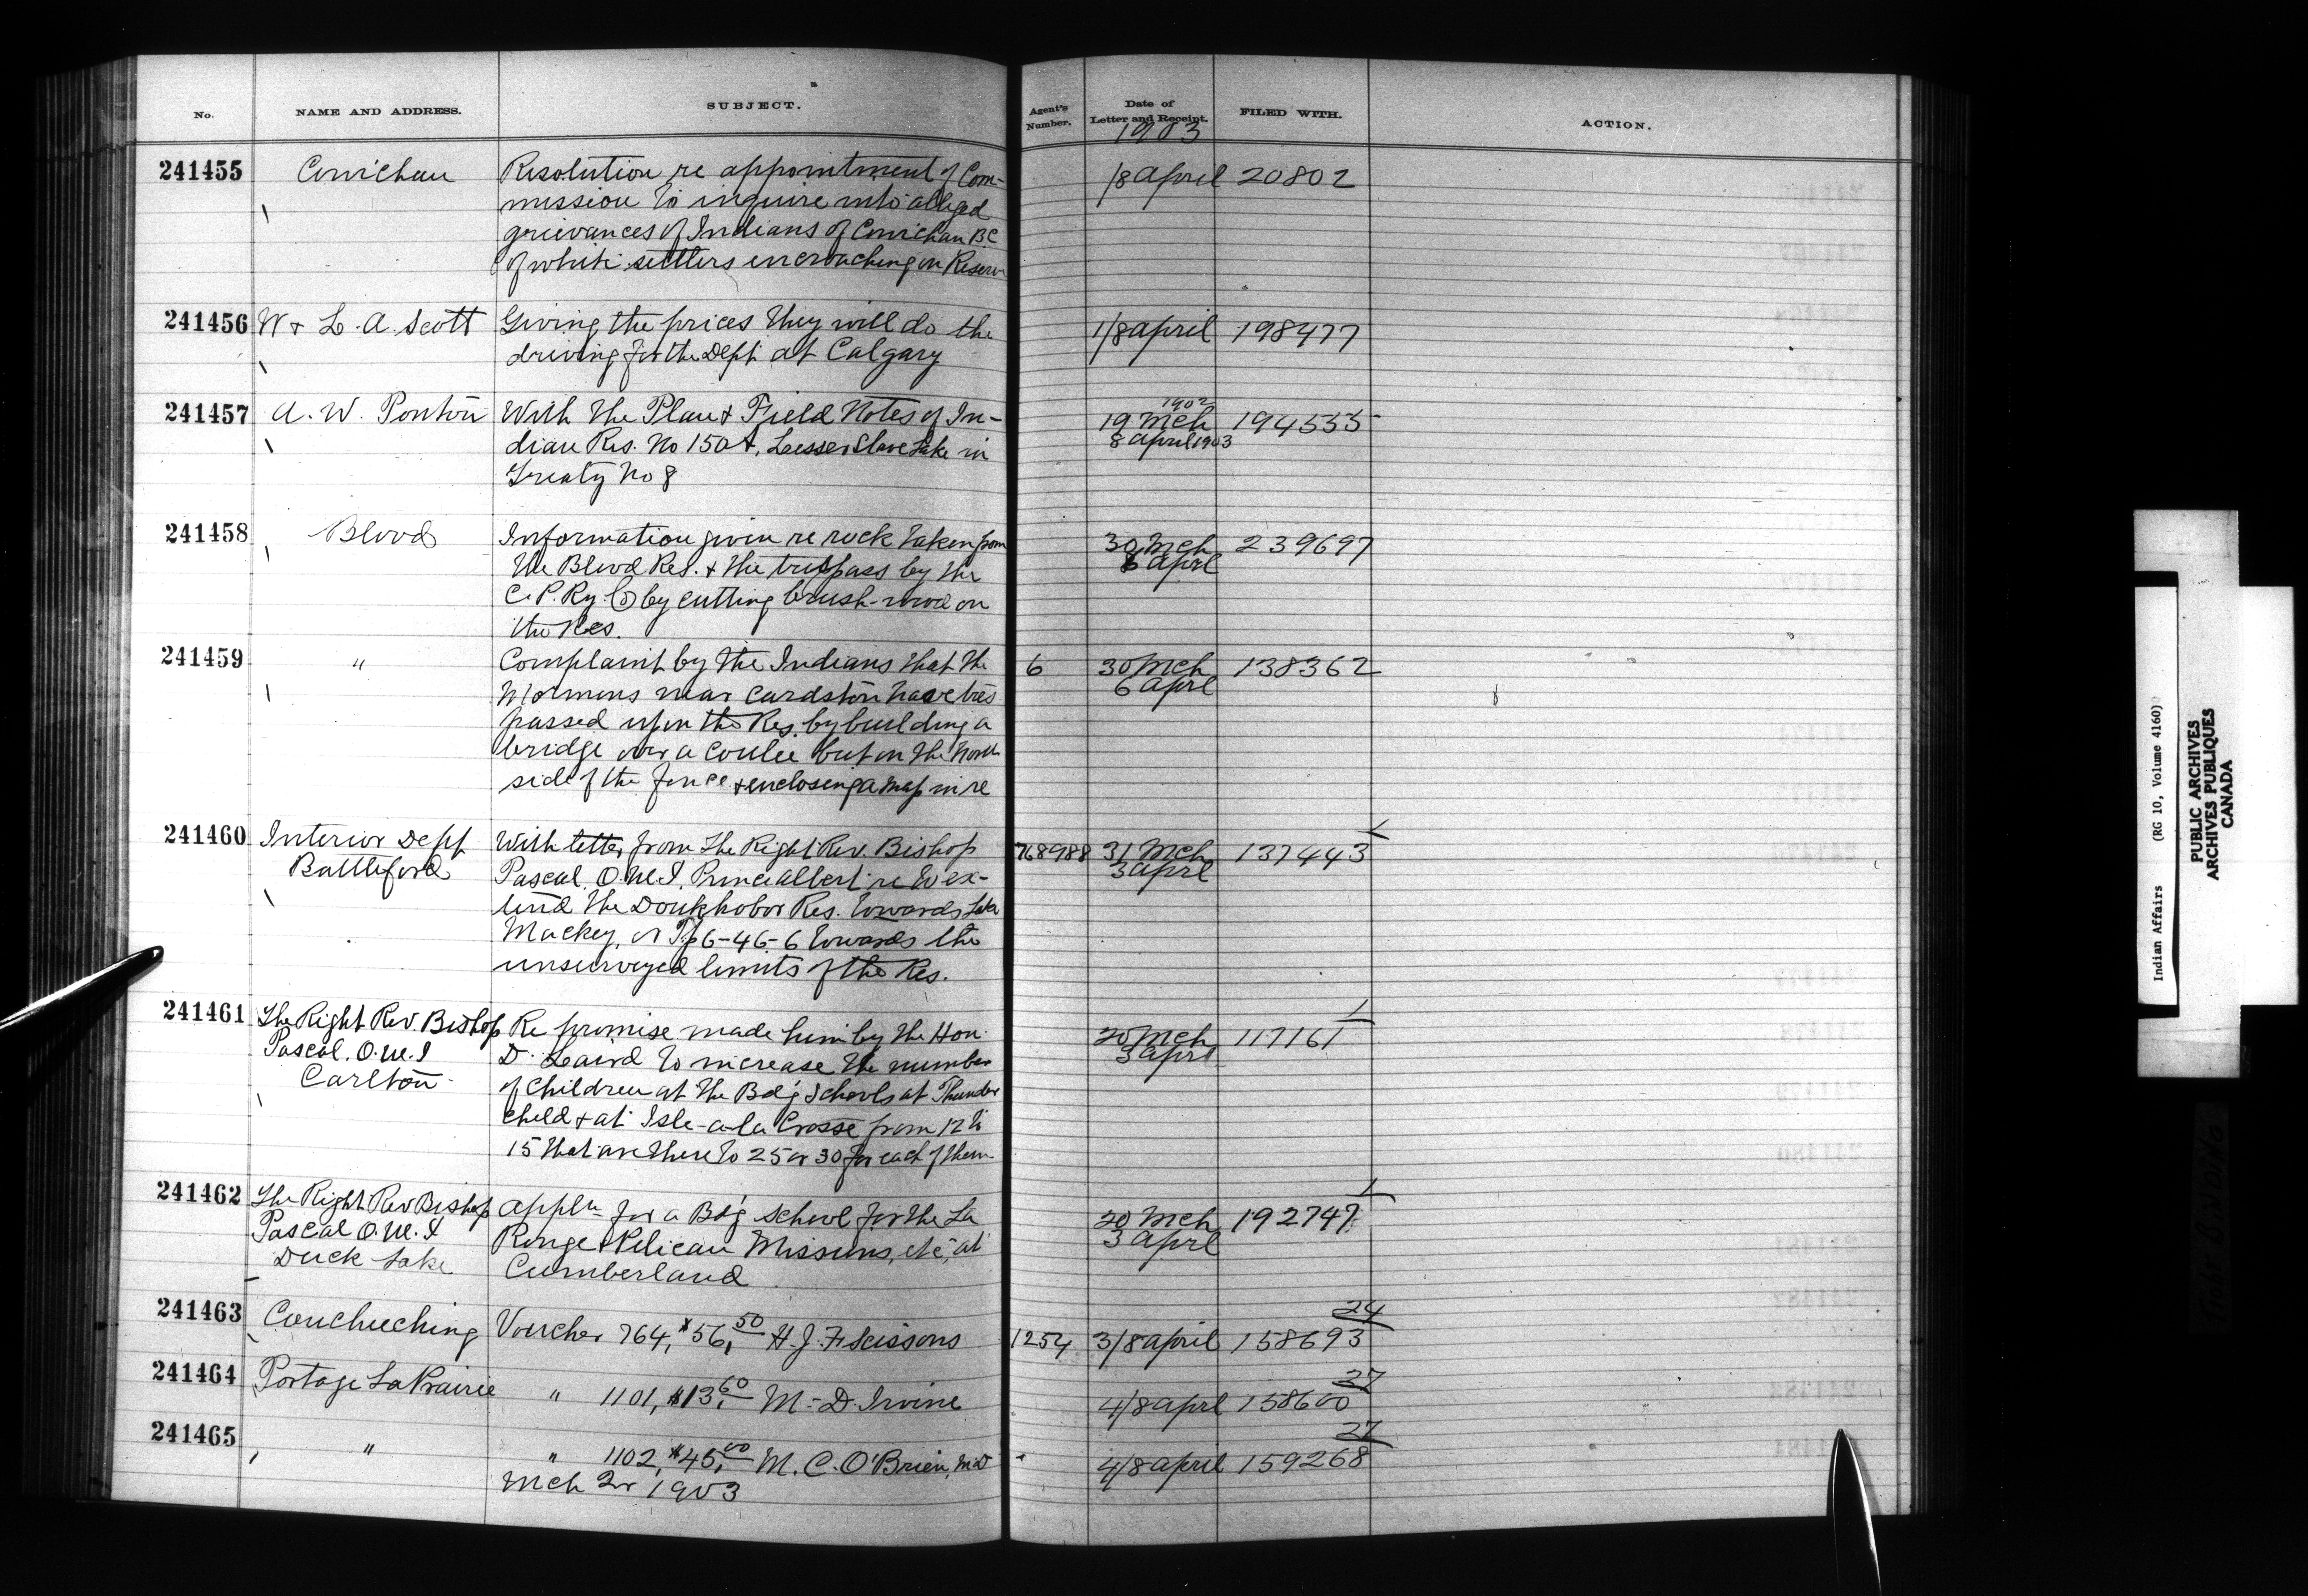 No.
NAME AND ADDRESS.
SUBJECT.
Agent's Number.
Date of Letter and Receipt.
FILED WITH.
ACTION.
1903
241455 Cowichan Resolution re appointment of Com- 1/8 April 20802
mission to inquire into alleged
grievances of Indians of Cowichan B.C
of white settlers encroaching on Reserve
241456 W & L. A. Scott Giving the prices they will do the 1/8 April 198477
driving for the Dept at Calgary
241457 A. W. Ponton With the Plan & Field Notes of In- 1902 19 Mch 194535
dian Res. No 150A, Lesser Slave Lake in 8 April 1903
Treaty No 8
241458 Blood Information given re rock taken from 30 Mch 239697
the Blood Res. & the trespass by the 6 April
C. P. Ry. Co by cutting brush-wood on
the Res.
241459 " Complaint by the Indians that the 6 30 Mch 138362
Mormons near Cardston have tres 6 April
passed upon the Res. by building a
bridge over a coulee but on the North
side of the fence & enclosing a map in re
241460 Interior Dept With letter from the Right Rev. Bishop 768988 31 Mch 137443
Battleford Pascal, O.M.I, Prince Albert re to ex- 3 April
tend the Doukhobor Res. towards Lake
Mackey, or Tp 6-46-6 towards the
unsurveyed limits of the Res.
241461 The Right Rev. Bishop Re promise made him by the Hon. 20 Mch 117161
Pascal, O.M.I D. Laird to increase the number 3 April
Carlton of children at the Bdg Schools at Thunder
child & at Isle-a-la Crosse from 12 to
15 that are there to 25 or 30 for each of them
241462 The Right Rev Bishop Appln for a Bdg School for the La 20 Mch 192747
Pascal O.M.I Ronge & Pelican Missions, etc, at 3 April
Duck Lake Cumberland
24
241463 Couchiching Voucher 764, $56,50 H. J. F Scissons 1254 3/8 April 158693
27
241464 Portage La Prairie " 1101, $13,60 M- D. Irvine 4/8 April 158600
27
241465 " " 1102, $45,00 M. C. O'Brien, MD " 4/8 April 159268
Mch Qr 1903
Indian Affairs (RG 10, Volume 4160)
PUBLIC ARCHIVES
ARCHIVES PUBLIQUES
CANADA